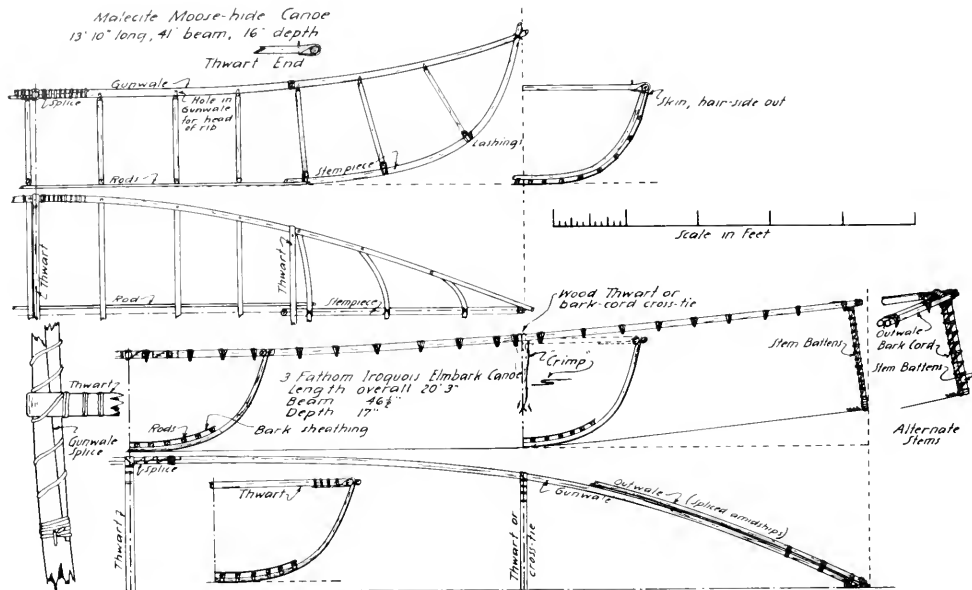 Malecite Moose-hide Canoe
13' 10" long, 41" beam, 16" depth
Thwart End
Gunwale
Splice
Hole in
Gunwale
for head
of rib
Lashings
Stempiece
Rods
Skin, hair-side out
Scale in Feet
Thwart
Thwart
Rod
Stempiece
Wood Thwart or
bark-cord cross-tie
Stem Battens
Outwale
Bark Cord
Stem Battens
Alternate
Stems
"Crimp"
3 Fathom Iroquois Elmbark Canoe
Length overall 20' 3"
Beam 46½"
Depth 17"
Rods
Bark sheathing
Thwart
Gunwale
Splice
Splice
Thwart
Thwart
Thwart or
cross-tie
Gunwale
Outwale (spliced amidships)